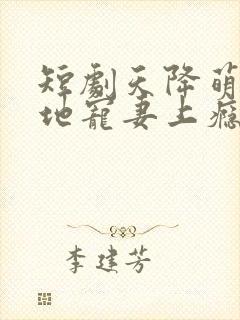 短劇天降萌
地寵妻上癮
李建芳